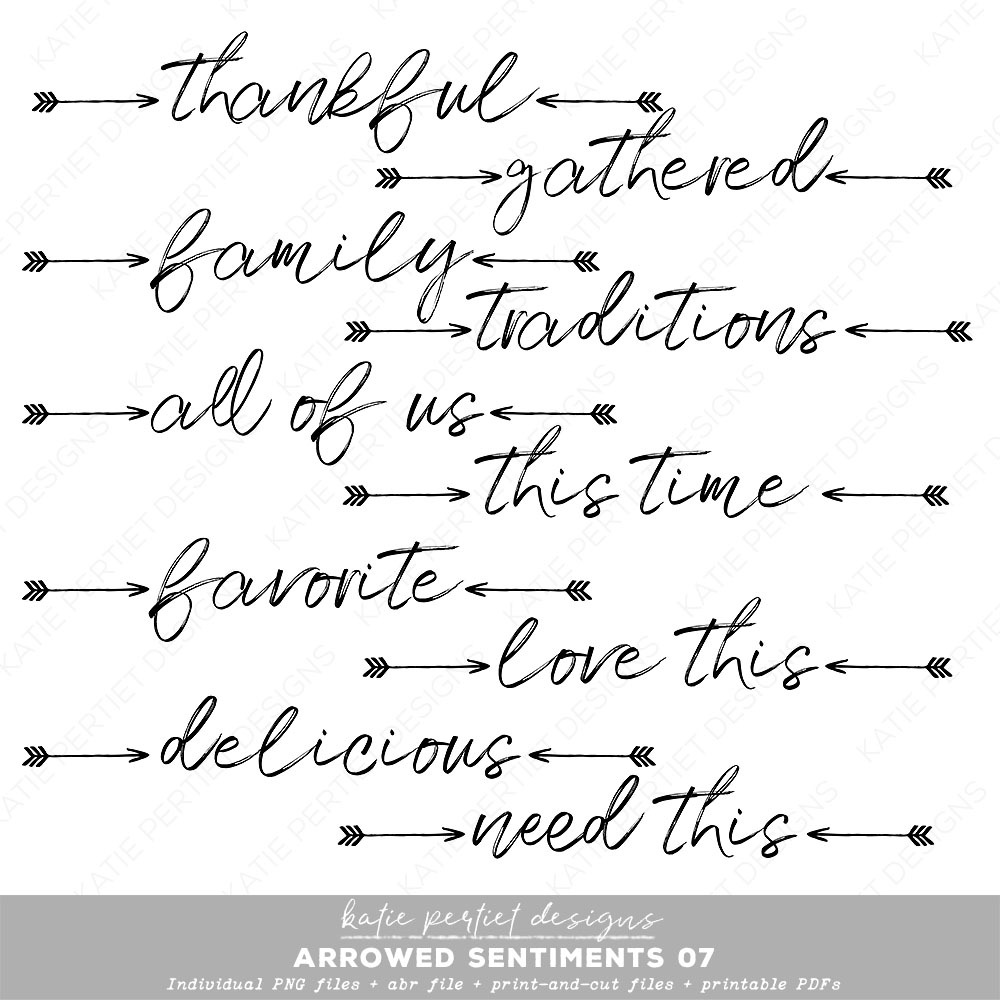 thankful
gathered
family
traditions
all of us
this time
favorite
love this
delicious
need this
katie pertiet designs
ARROWED SENTIMENTS 07
Individual PNG files + abr file + print-and-cut files + printable PDFs
KATIE PERTIET DESIGNS